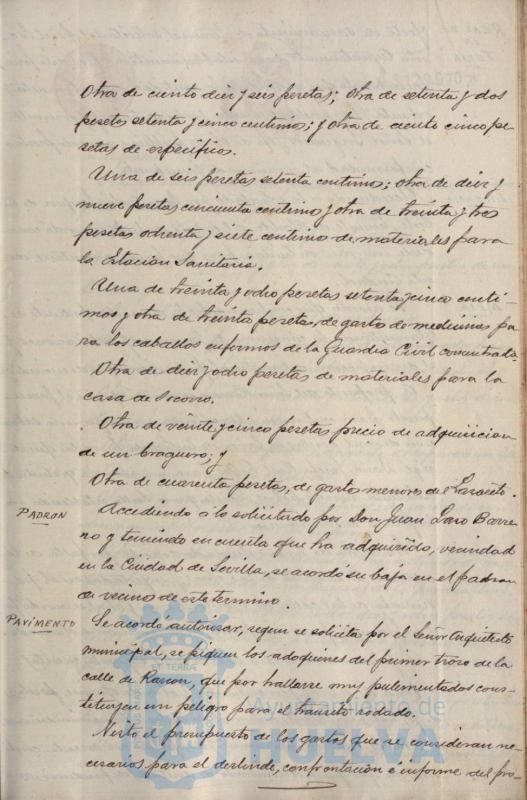 Otra de ciento diez y seis pesetas; otra de setenta y dos
pesetas setenta y cinco centimos; y otra de ciento cinco pe-
setas de específicos.
Una de seis pesetas setenta centimos; otra de diez y
nueve pesetas cincuenta centimos y otra de treinta y tres
pesetas ochenta y siete centimos de materiales para
la Estación Sanitaria.
Una de treinta y ocho pesetas setenta y cinco centi-
mos y otra de treinta pesetas, de gastos de medicinas pa-
ra los caballos enfermos de la Guardia Civil concentrada.
Otra de diez y ocho pesetas de materiales para la
casa de Socorro.
Otra de veinte y cinco pesetas precio de adquisicion
de un braguero; y
Otra de cuarenta pesetas, de gastos menores del
PADRON
Accediendo á lo solicitado por Don Juan Barre-
ro y teniendo en cuenta que ha adquirido, vecindad
en la Ciudad de Sevilla, se acordó su baja en el padron
de vecinos de este termino.
PAVIMENTO
Se acordó autorizar, segun se solicita por el Señor Arquitecto
municipal, se piquen los adoquines del primer trozo de la
calle de Rascon, que por hallarse muy pulimentados cons-
tituyen un peligro para el transito rodado.
Visto el presupuesto de los gastos que se consideran ne-
cesarios para el deslinde, confrontación é informe del pro-
Ayuntamiento de
HUELVA